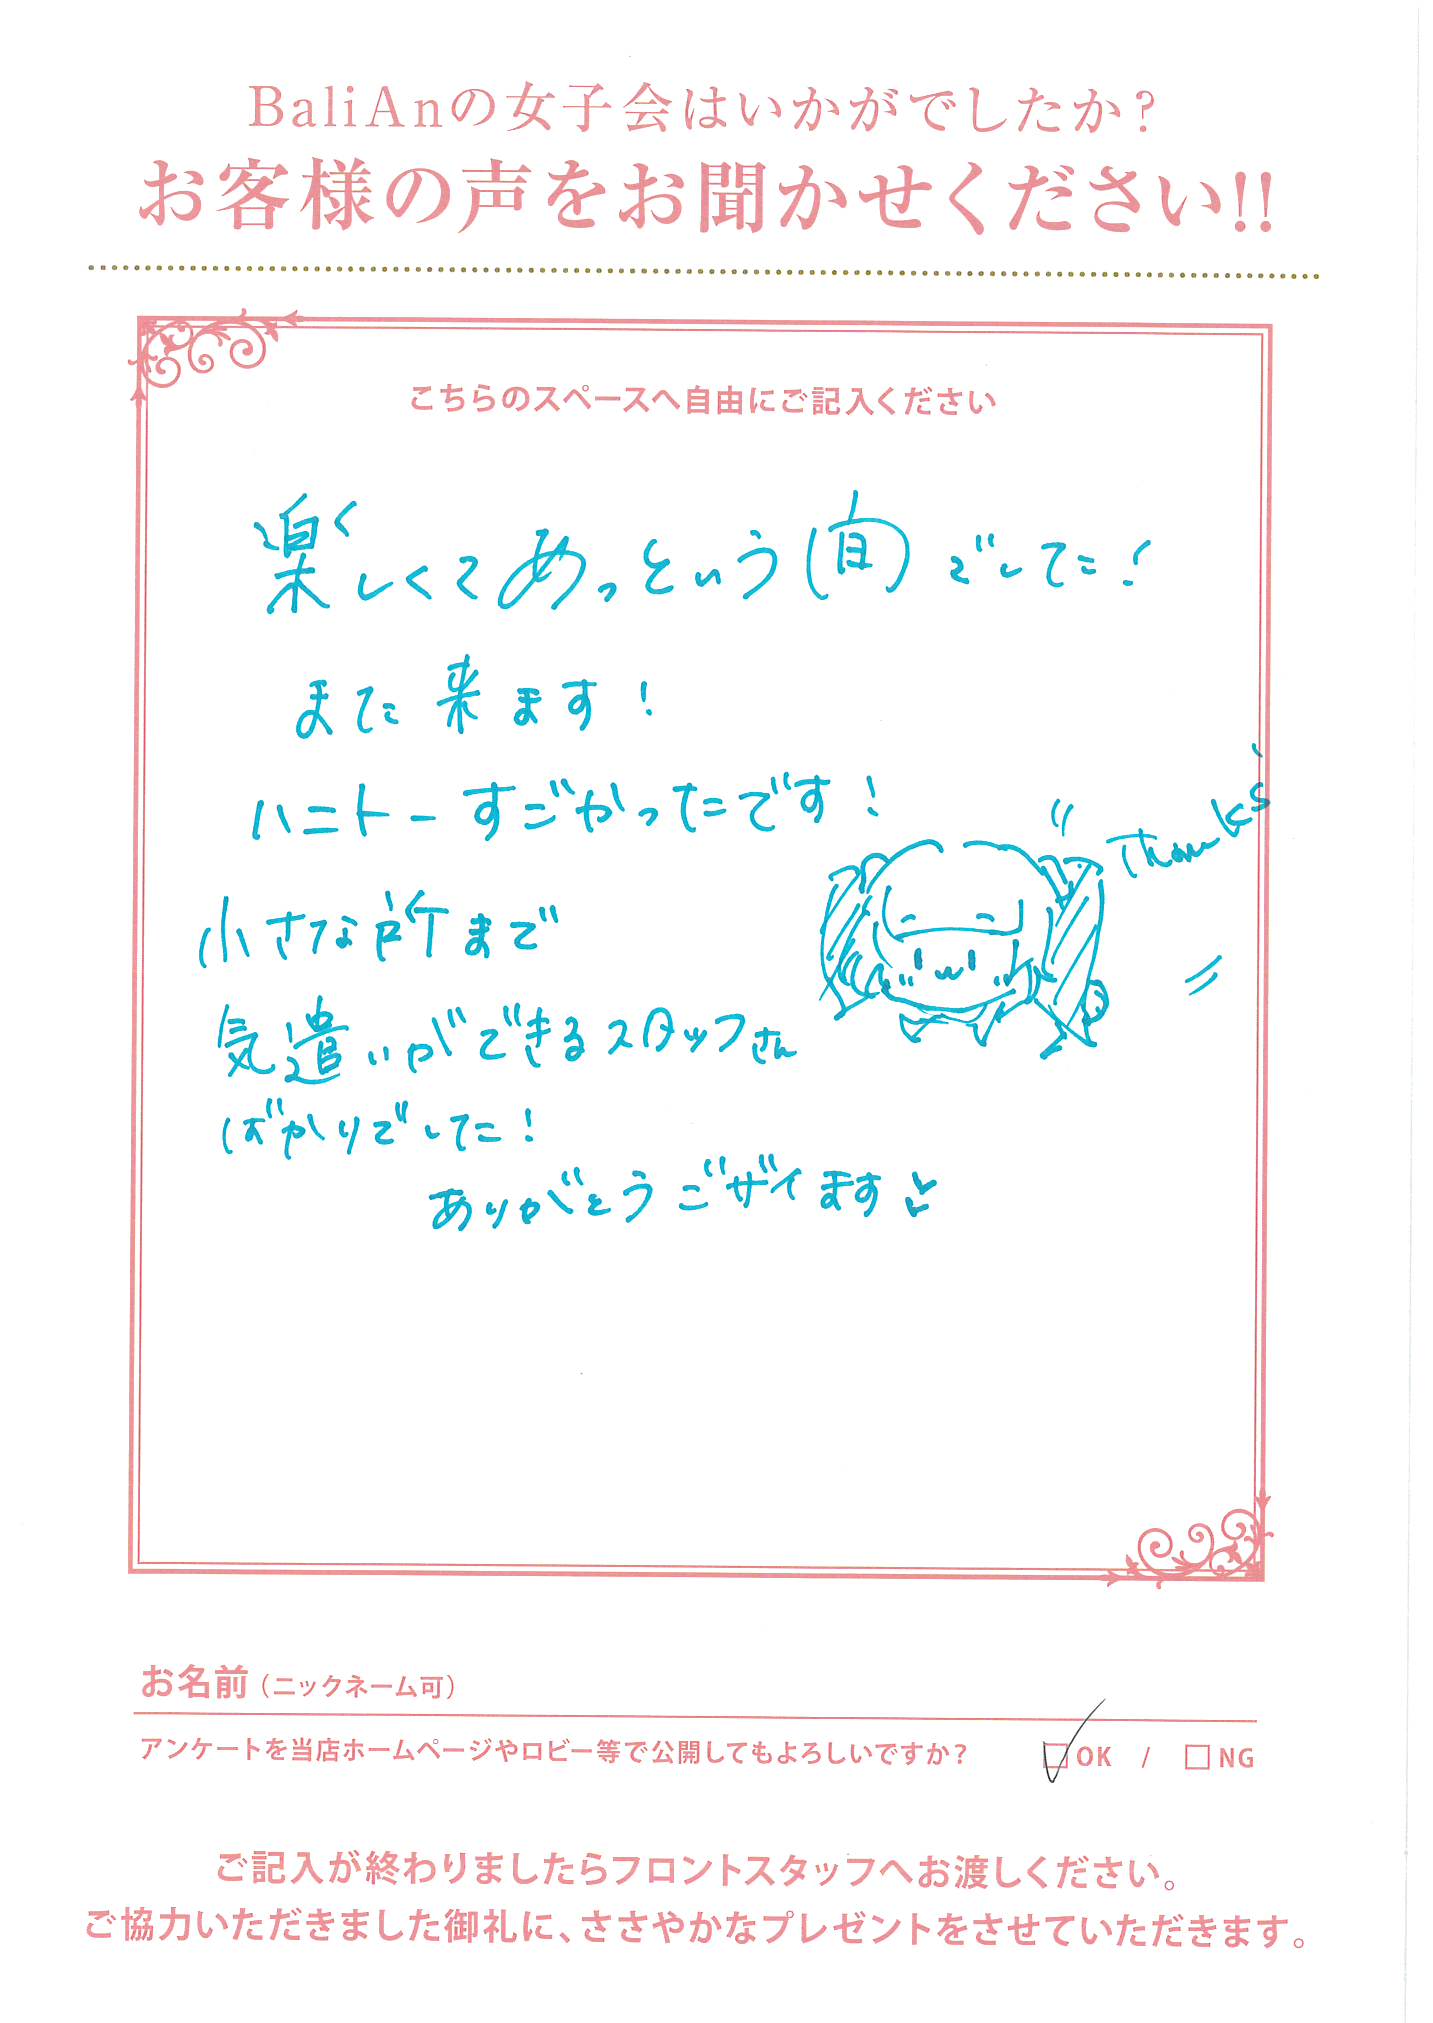 BaliAnの女子会はいかがでしたか?
お客様の声をお聞かせください!!
こちらのスペースへ自由にご記入ください
楽しくてあっという間でした!
また来ます!
ハニトーすごかったです!
Thanks
小さな所まで
気遣いができるスタッフさん
ばかりでした!
ありがとうごザイます
お名前(ニックネーム可)
アンケートを当店ホームページやロビー等で公開してもよろしいですか? OK / NG
ご記入が終わりましたらフロントスタッフへお渡しください。
ご協力いただきました御礼に、ささやかなプレゼントをさせていただきます。